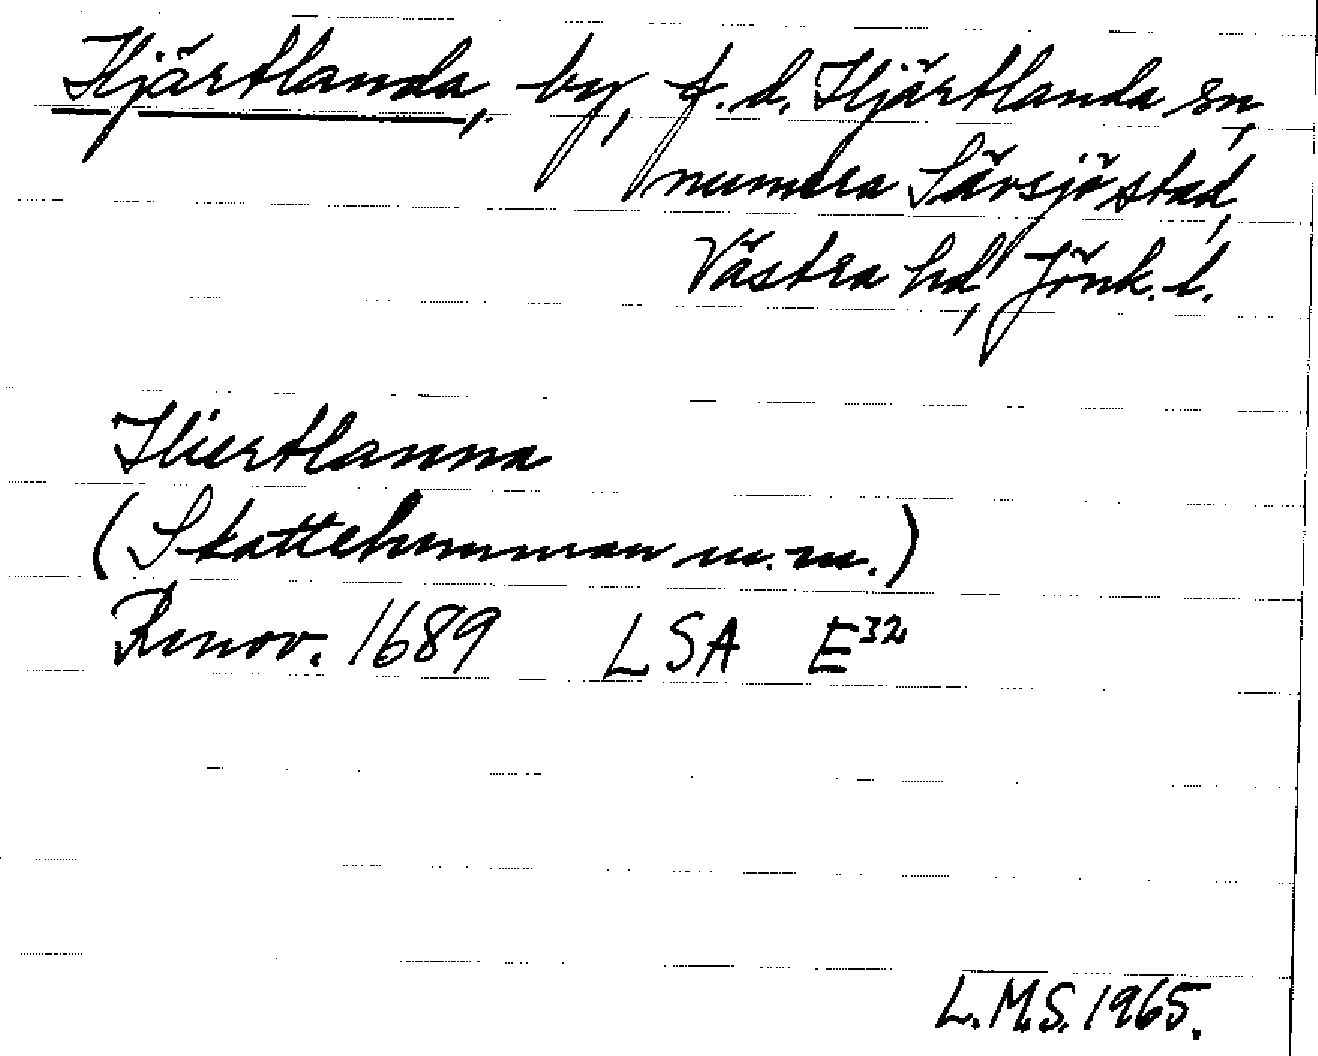 Hjärtlanda, by, f. d. Hjärtlanda sn,
numera Sävsjö stad,
Västra hd, Jönk. l.
Hiertlanna
(Skattehemman m. m.)
Renov. 1689 LSA E32
L.M.S. 1965.